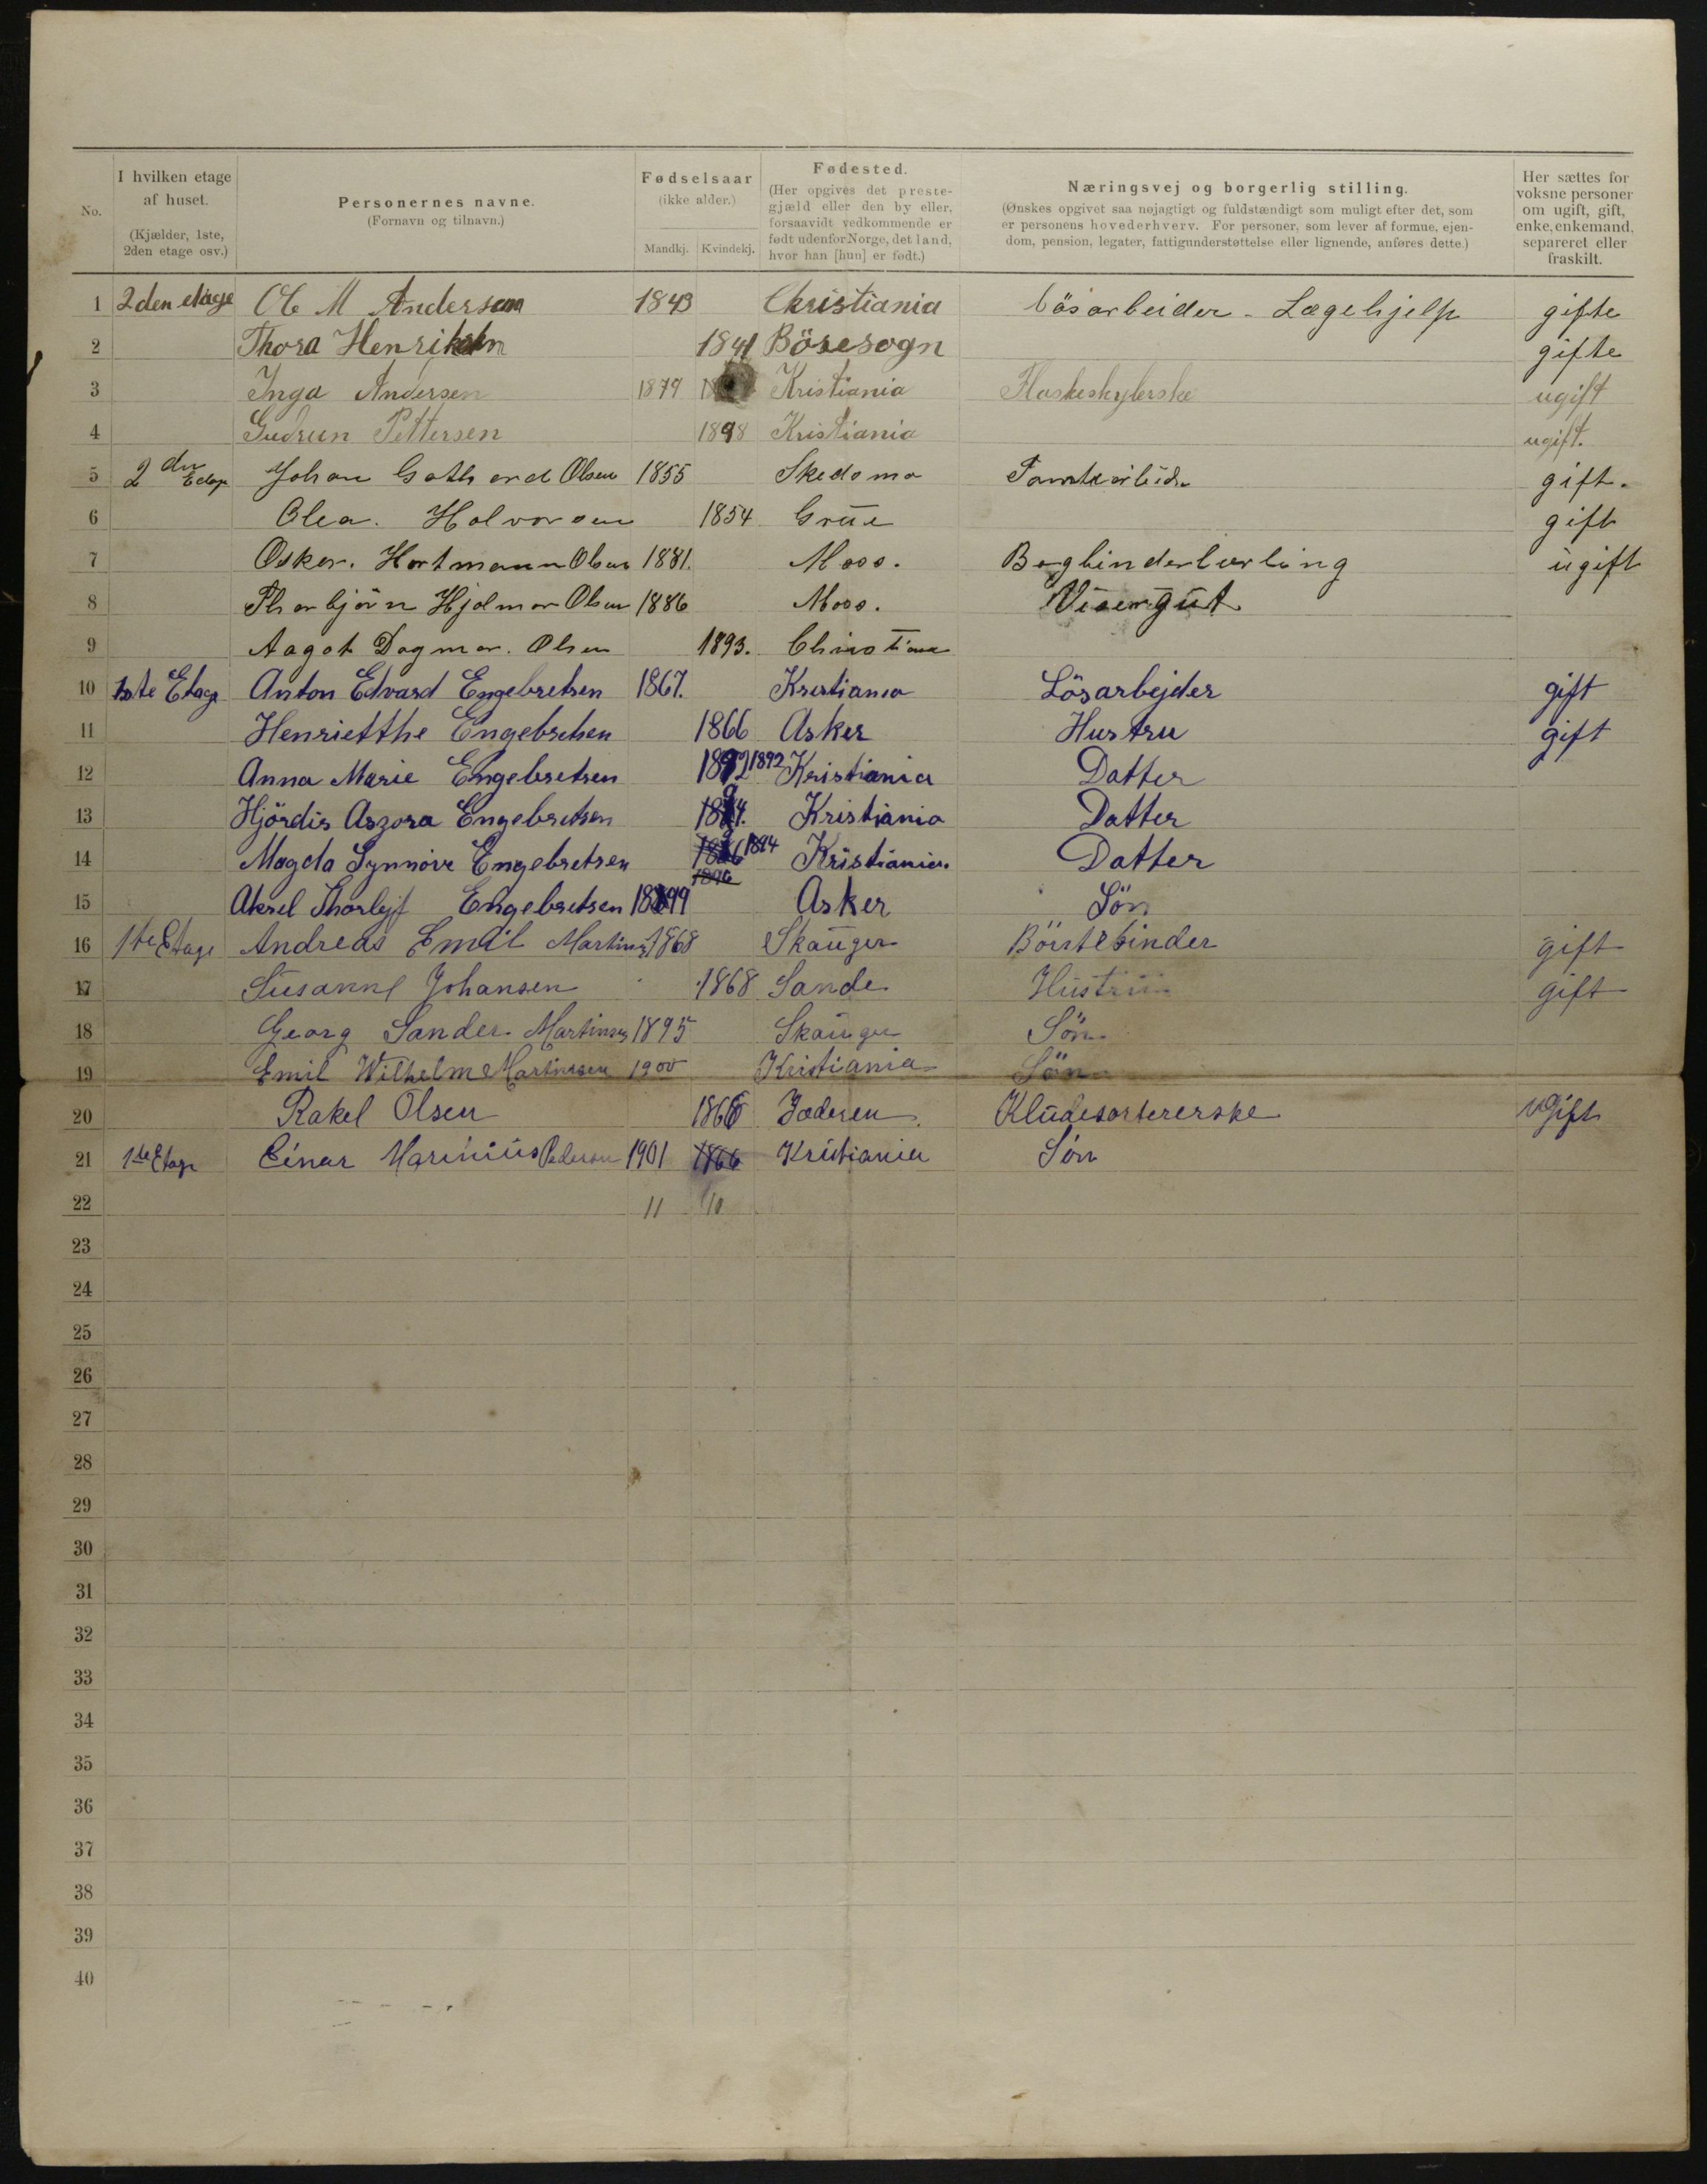 No.
I hvilken etage af huset. (Kjælder, 1ste, 2den etage osv.)
Personernes navne. (Fornavn og tilnavn.)
Fødselsaar (ikke alder.)
Mandkj. Kvindekj.
Fødested. (Her opgives det prestegjæld eller den by eller, forsaavidt vedkommende er født udenfor Norge, det land, hvor han [hun] er født.)
Næringsvej og borgerlig stilling. (Ønskes opgivet saa nøjagtigt og fuldstændigt som muligt efter det, som er personens hovederhverv. For personer, som lever af formue, ejendom, pension, legater, fattigunderstøttelse eller lignende, anføres dette.)
Her sættes for voksne personer om ugift, gift, enke, enkemand, separeret eller fraskilt.
1 2den etage Ole M Andersen 1843 Christiania Lösarbeider - Lægehjelp gifte
2 Thora Henriksen 1841 Börsesogn gifte
3 Inga Andersen 1879 Kristiania Flaskeskylerske ugift
4 Gudrun Pettersen 1898 Kristiania ugift.
5 2den Etage Johan Gothard Olsen 1855 Skedsmo Tomtearbeider gift.
6 Olea. Halvorsen 1854 Grue gift
7 Oskar. Hartmann Olsen 1881. Moss. Bogbinderlærling ugift
8 Thorbjörn Hjalmar Olsen 1886 Moss. Visergut
9 Aagot Dagmar. Olsen 1893. Christiania
10 1ste Etage Anton Edvard Engebretsen 1867. Kristiania Lösarbejder gift
11 Henrietthe Engebretsen 1866 Asker Hustru gift
12 Anna Marie Engebretsen 1892 1892 Kristiania Datter
13 Hjördis Aszora Engebretsen 1894. Kristiania Datter
14 Magda Synnöve Engebretsen 1896 1894 1896 Kristiania. Datter
15 Aksel Thorlejf Engebretsen 1899 Asker Sön
16 1ste Etage Andreas Emil Martinsen 1868 Skauger Börstebinder gift
17 Susanne Johansen 1868 Sande Hustru gift
18 Georg Sander Martinsen 1895 Skauger Sön
19 Emil Wilhelm Martinsen 1900 Kristiania Sön
20 Rakel Olsen 1866 Jæderen. Kludesortererske ugift
21 1ste Etage Einar Marinius Pedersen 1901 1866 Kristiania Sön
22 11 10
23
24
25
26
27
28
29
30
31
32
33
34
35
36
37
38
39
40